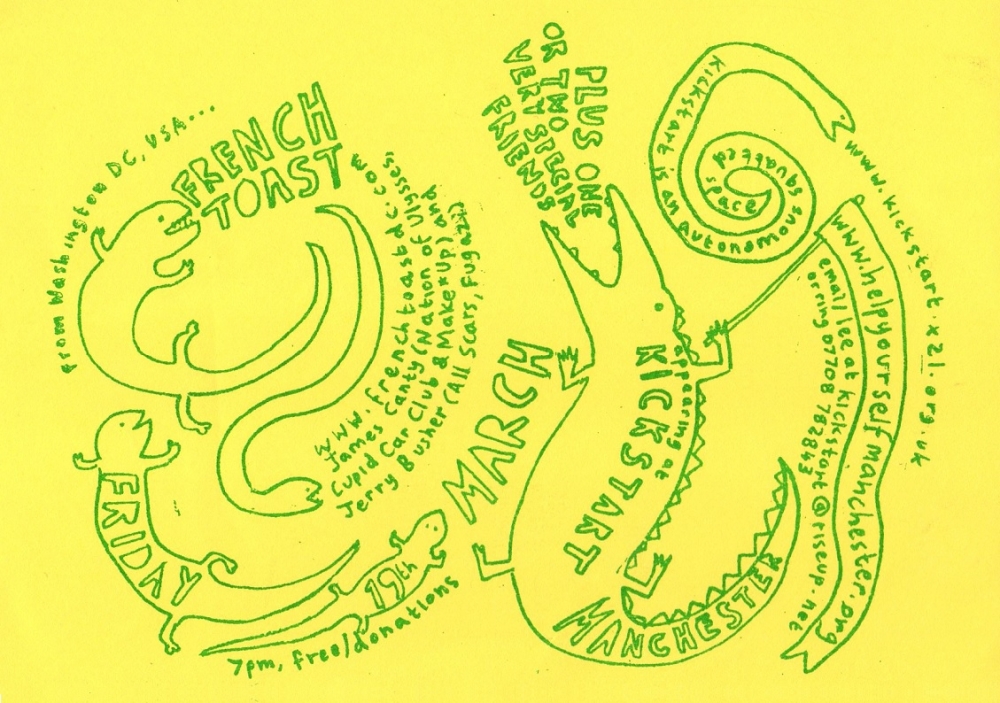 from Washington DC, USA...
FRENCH
TOAST
www.frenchtoastdc.com
James Canty (Nation of Ulysses,
Cupid Car Club & Make*Up) and
Jerry Busher (All Scars, Fugazi)
FRIDAY
19th
MARCH
7pm, free/donations
PLUS ONE
OR TWO
VERY SPECIAL
FRIENDS
appearing at
KICKSTART
MANCHESTER
kickstart is an autonomous squatted space
www.kickstart.x21.org.uk
www.helpyourselfmanchester.org
email lee at kickstart@riseup.net
or ring 07708 782843